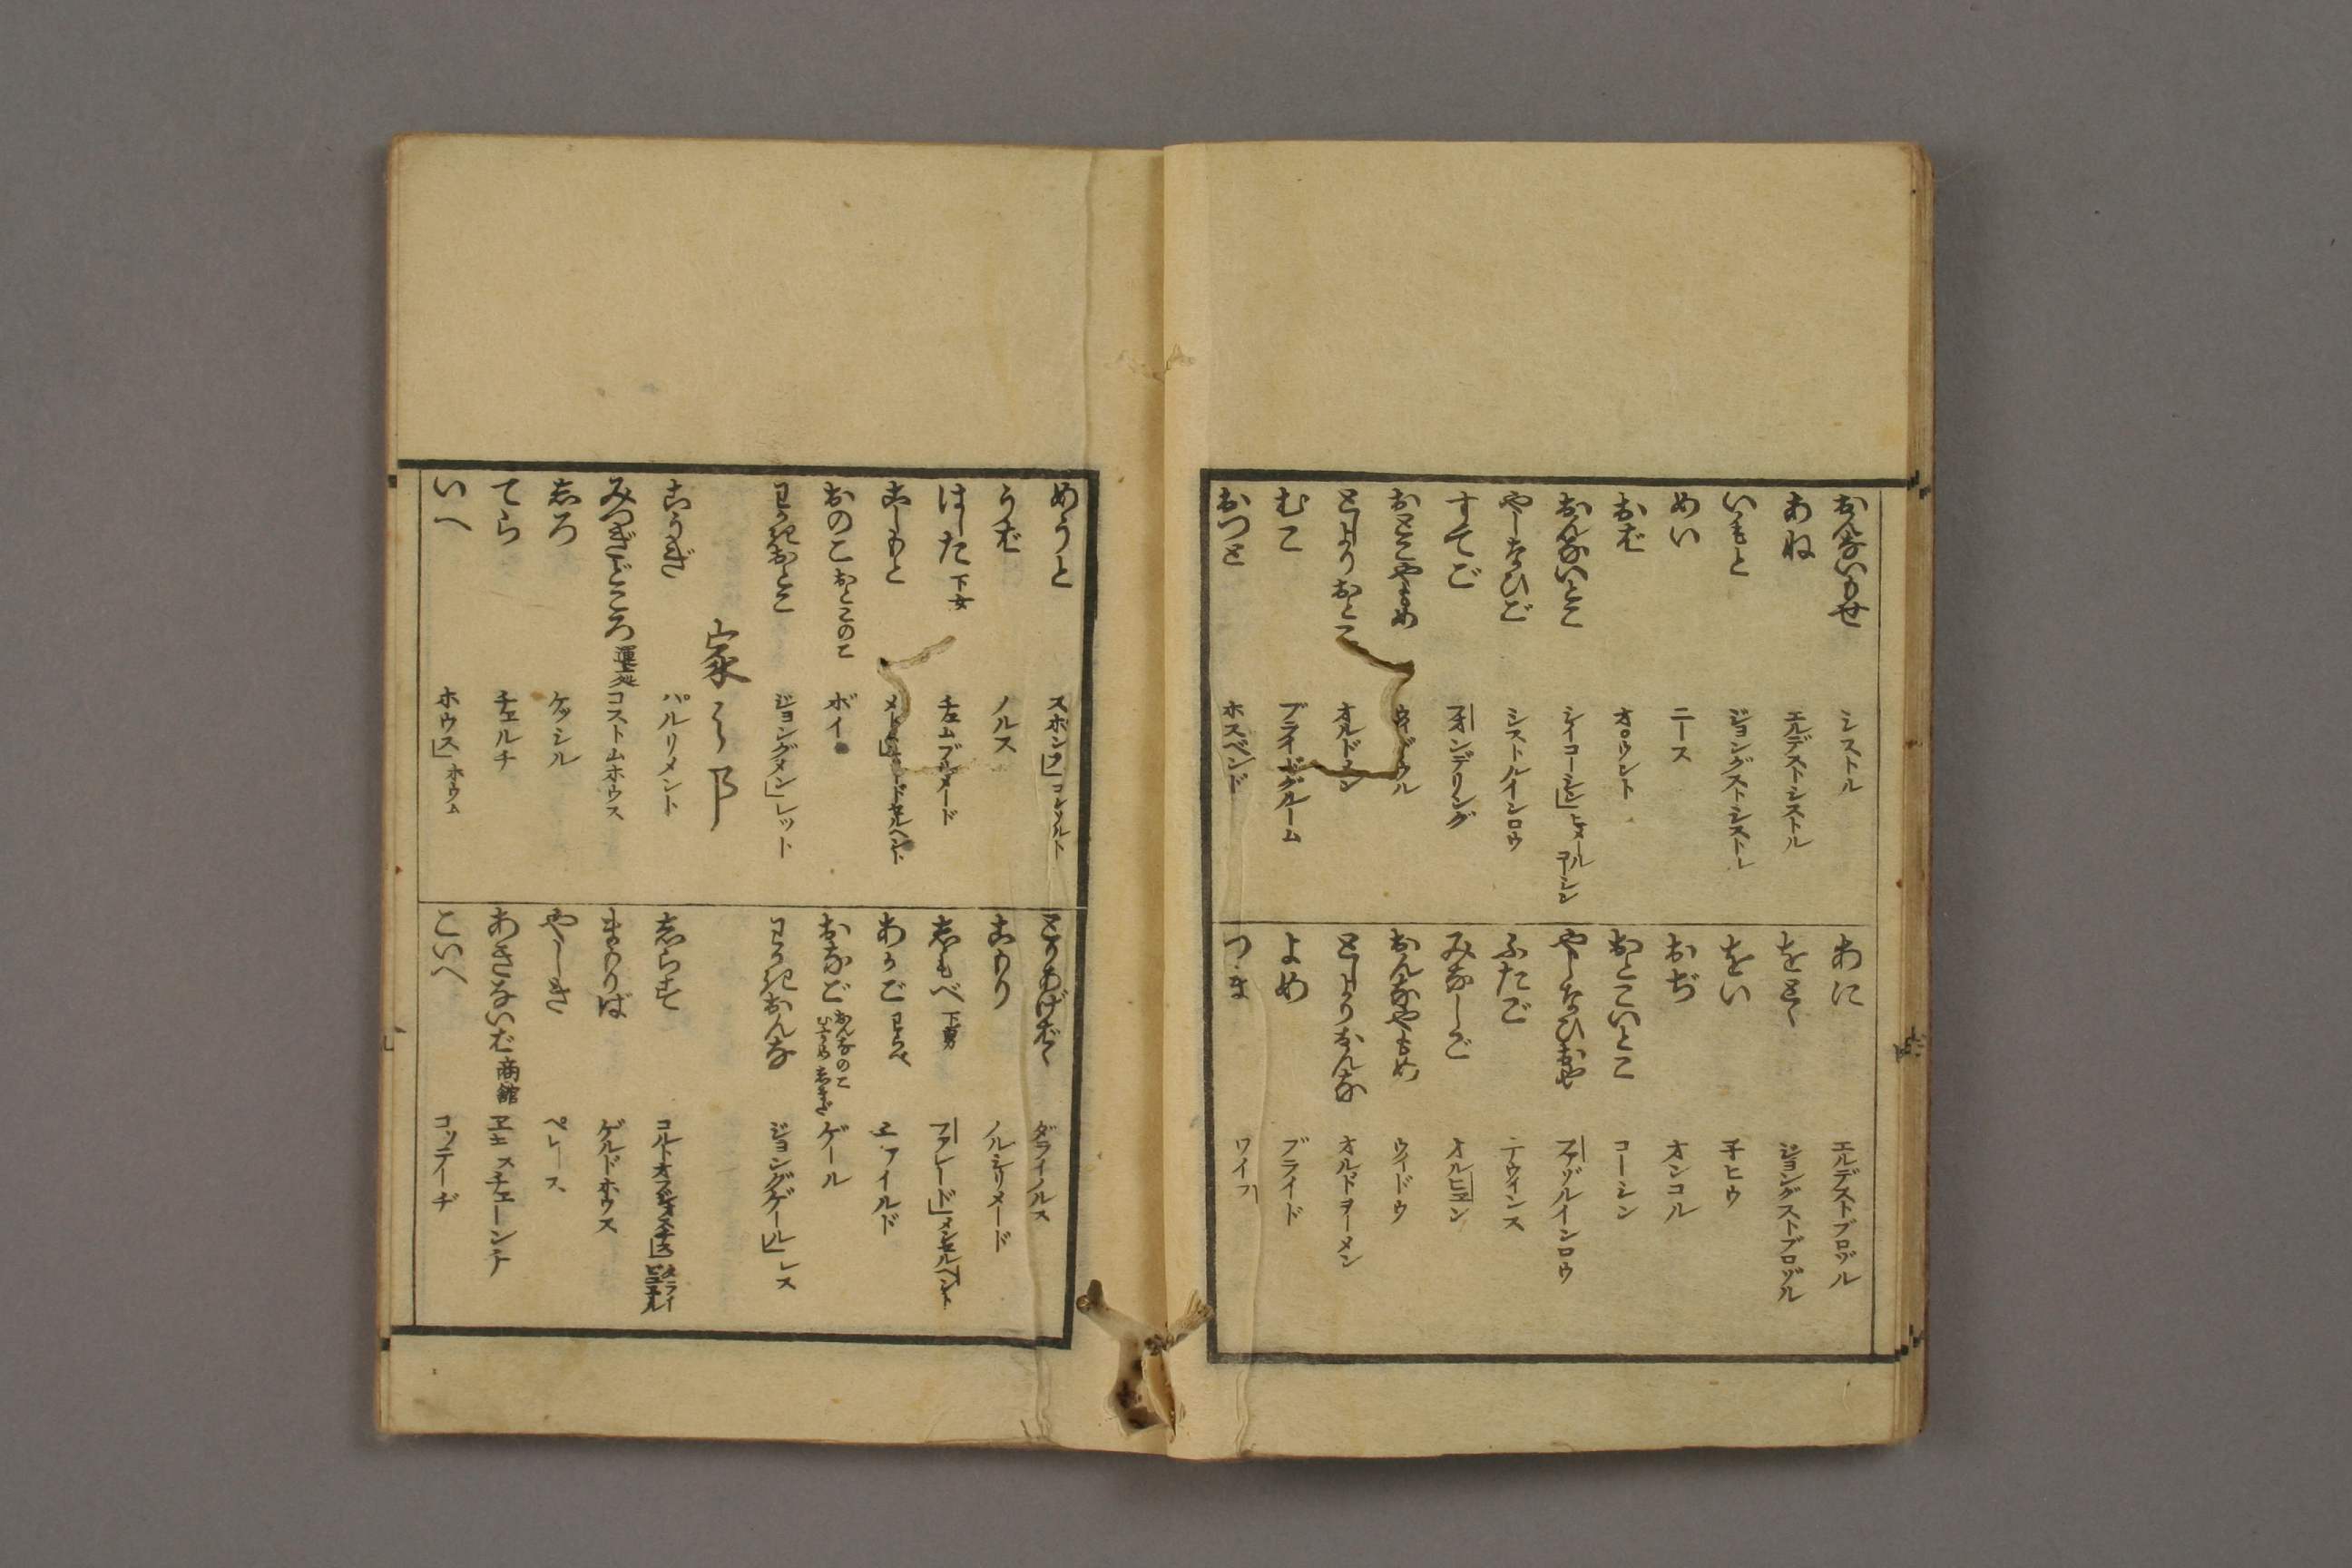 おんないもせ シストル
あね エルデストシストル
いもと ジョングストシストル
めい ニース
おば オロウント
おんないとこ シイコーシン」ヒメールコーシン
やしなひご シストルインロウ
すてご フオンデリング
おとこやもめ ウイドウル
としよりおとこ オルドメン
むこ ブライドグルーム
おつと ホスベンド
あに エルデストブロヅル
をとゝ ジョングストブロヅル
をい 子ヒウ
おぢ オンコル
おとこいとこ コーシン
やしなひおや フアヅルインロウ
ふたご テウインス
みなしご オルヒヱン
おんなやもめ ウイドウ
としよりおんな オルドヲーメン
よめ ブライド
つま ワイフ
めうと スホンス」コンソルト
うば ノルス
はした 下女 チェムブルメード
こしもと メード」
おのこ おとこのこ ボイ
わかきおとこ ジョングメン」レット
家之部
こうぎ パルリメント
みつぎどころ 運上処 コストムホウス
しろ ケッシル
てら チェルチ
いへ ホウス」ホウム
とりあげばゝ ダライノルス
こもり ノルシリメード
しもべ 下男 フアレード」メンセルヘント
あかご わらべ チアイルド
おなご おんなのこ ゲール
わかきおんな ジョングゲール」レス
しらす
まもりば ゲルドホウス
やしき ペレース
あきないば 商館 エキスチェーンヂ
こいへ コッテーヂ